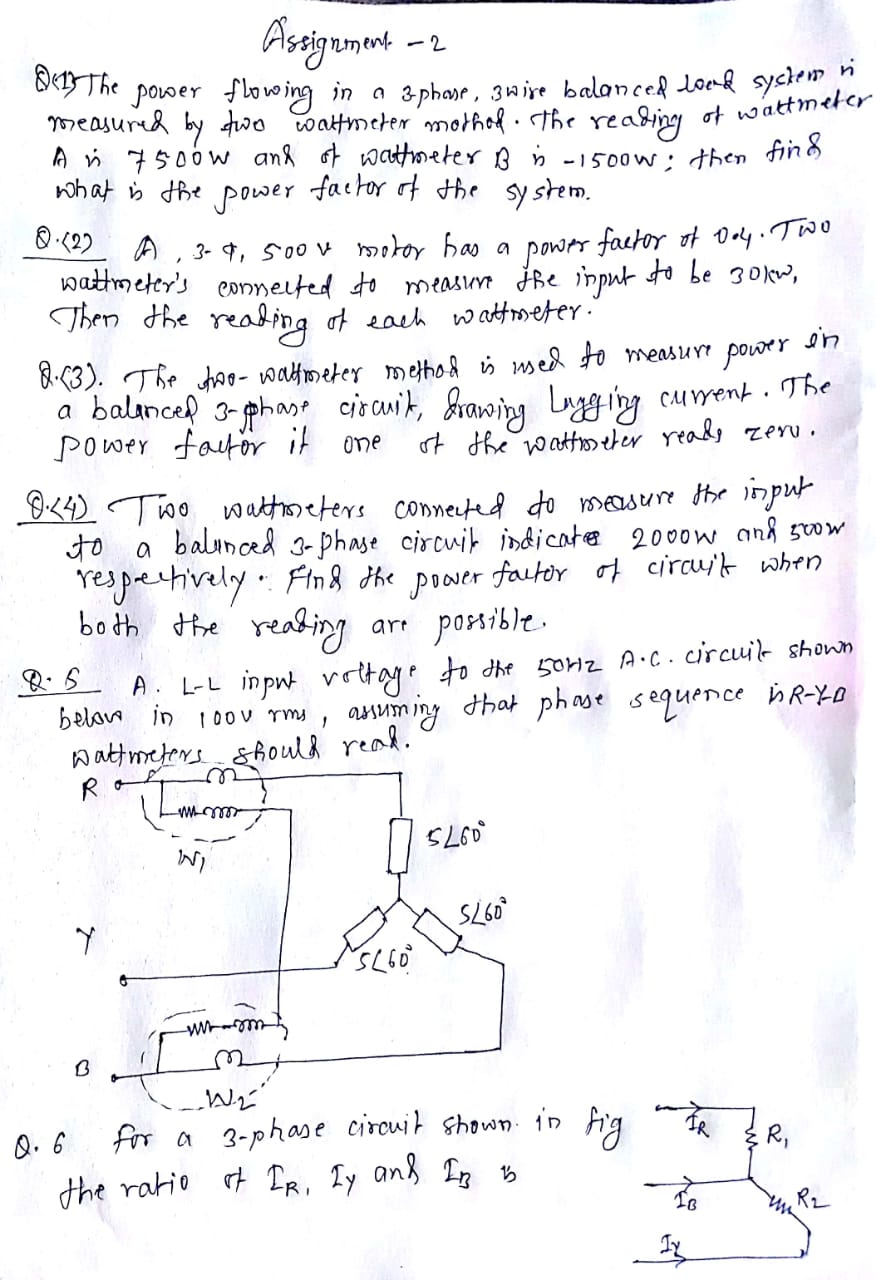 Assignment - 2
Q(1) The power flowing in a 3-phase, 3 wire balanced load system is
measured by two wattmeter mothod. The reading of wattmeter
A is 7500W and of wattmeter B is -1500W; then find
what is the power factor of the system.
Q.(2) A, 3-φ, 500 V motor has a power factor of 0.4. Two
wattmeter's connected to measure the input to be 30kW,
Then the reading of each wattmeter.
Q.(3). The two-wattmeter method is used to measure power in
a balanced 3-phase circuit, drawing Lagging current. The
power factor if one of the wattmeter reads zero.
Q.(4) Two wattmeters connected to measure the input
to a balanced 3-phase circuit indicates 2000W and 500W
respectively. Find the power factor of circuit when
both the reading are possible.
Q.5 A. L-L input voltage to the 50HZ A.C. circuit shown
below in 100V rms, assuming that phase sequence is R-Y-B
Wattmeters should read.
R
W1
5∠60°
5∠60°
Y
5∠60°
B
W2
Q.6 for a 3-phase circuit shown in fig
the ratio of IR, Iy and IB is
IR
R1
IB
R2
Iy